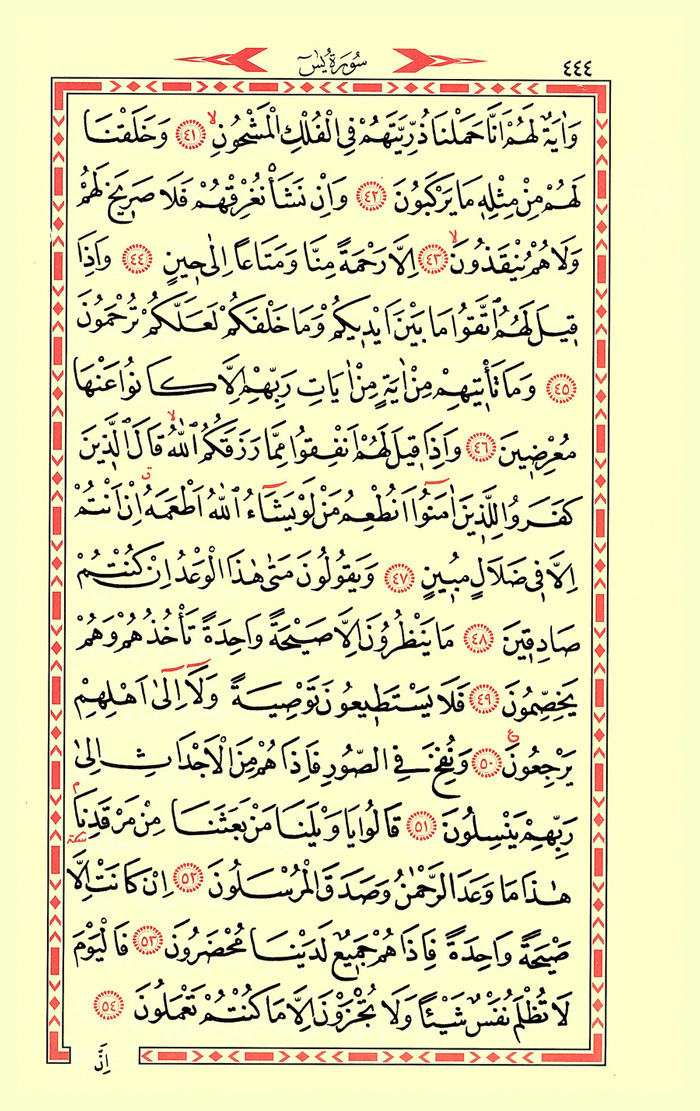 ٤٤٤
سُورَةُ يٰسٓ
وَاٰيَةٌ لَهُمْ اَنَّا حَمَلْنَا ذُرِّيَّتَهُمْ فِي الْفُلْكِ الْمَشْحُونِۙ ﴿٤١﴾ وَخَلَقْنَا
لَهُمْ مِنْ مِثْلِهٖ مَا يَرْكَبُونَ ﴿٤٢﴾ وَاِنْ نَشَأْ نُغْرِقْهُمْ فَلَا صَرٖيخَ لَهُمْ
وَلَا هُمْ يُنْقَذُونَۙ ﴿٤٣﴾ اِلَّا رَحْمَةً مِنَّا وَمَتَاعاً اِلٰى حٖينٍ ﴿٤٤﴾ وَاِذَا
قٖيلَ لَهُمُ اتَّقُوا مَا بَيْنَ اَيْدٖيكُمْ وَمَا خَلْفَكُمْ لَعَلَّكُمْ تُرْحَمُونَ
﴿٤٥﴾ وَمَا تَأْتٖيهِمْ مِنْ اٰيَةٍ مِنْ اٰيَاتِ رَبِّهِمْ اِلَّا كَانُوا عَنْهَا
مُعْرِضٖينَ ﴿٤٦﴾ وَاِذَا قٖيلَ لَهُمْ اَنْفِقُوا مِمَّا رَزَقَكُمُ اللّٰهُۙ قَالَ الَّذٖينَ
كَفَرُوا لِلَّذٖينَ اٰمَنُٓوا اَنُطْعِمُ مَنْ لَوْ يَشَٓاءُ اللّٰهُ اَطْعَمَهُࣗ اِنْ اَنْتُمْ
اِلَّا فٖي ضَلَالٍ مُبٖينٍ ﴿٤٧﴾ وَيَقُولُونَ مَتٰى هٰذَا الْوَعْدُ اِنْ كُنْتُمْ
صَادِقٖينَ ﴿٤٨﴾ مَا يَنْظُرُونَ اِلَّا صَيْحَةً وَاحِدَةً تَأْخُذُهُمْ وَهُمْ
يَخِصِّمُونَ ﴿٤٩﴾ فَلَا يَسْتَطٖيعُونَ تَوْصِيَةً وَلَٓا اِلٰٓى اَهْلِهِمْ
يَرْجِعُونَࣖ ﴿٥٠﴾ وَنُفِخَ فِي الصُّورِ فَاِذَا هُمْ مِنَ الْاَجْدَاثِ اِلٰى
رَبِّهِمْ يَنْسِلُونَ ﴿٥١﴾ قَالُوا يَا وَيْلَنَا مَنْ بَعَثَنَا مِنْ مَرْقَدِنَاۢ سكتة
هٰذَا مَا وَعَدَ الرَّحْمٰنُ وَصَدَقَ الْمُرْسَلُونَ ﴿٥٢﴾ اِنْ كَانَتْ اِلَّا
صَيْحَةً وَاحِدَةً فَاِذَا هُمْ جَمٖيعٌ لَدَيْنَا مُحْضَرُونَ ﴿٥٣﴾ فَالْيَوْمَ
لَا تُظْلَمُ نَفْسٌ شَيْـٔاً وَلَا تُجْزَوْنَ اِلَّا مَا كُنْتُمْ تَعْمَلُونَ ﴿٥٤﴾
اِنَّ